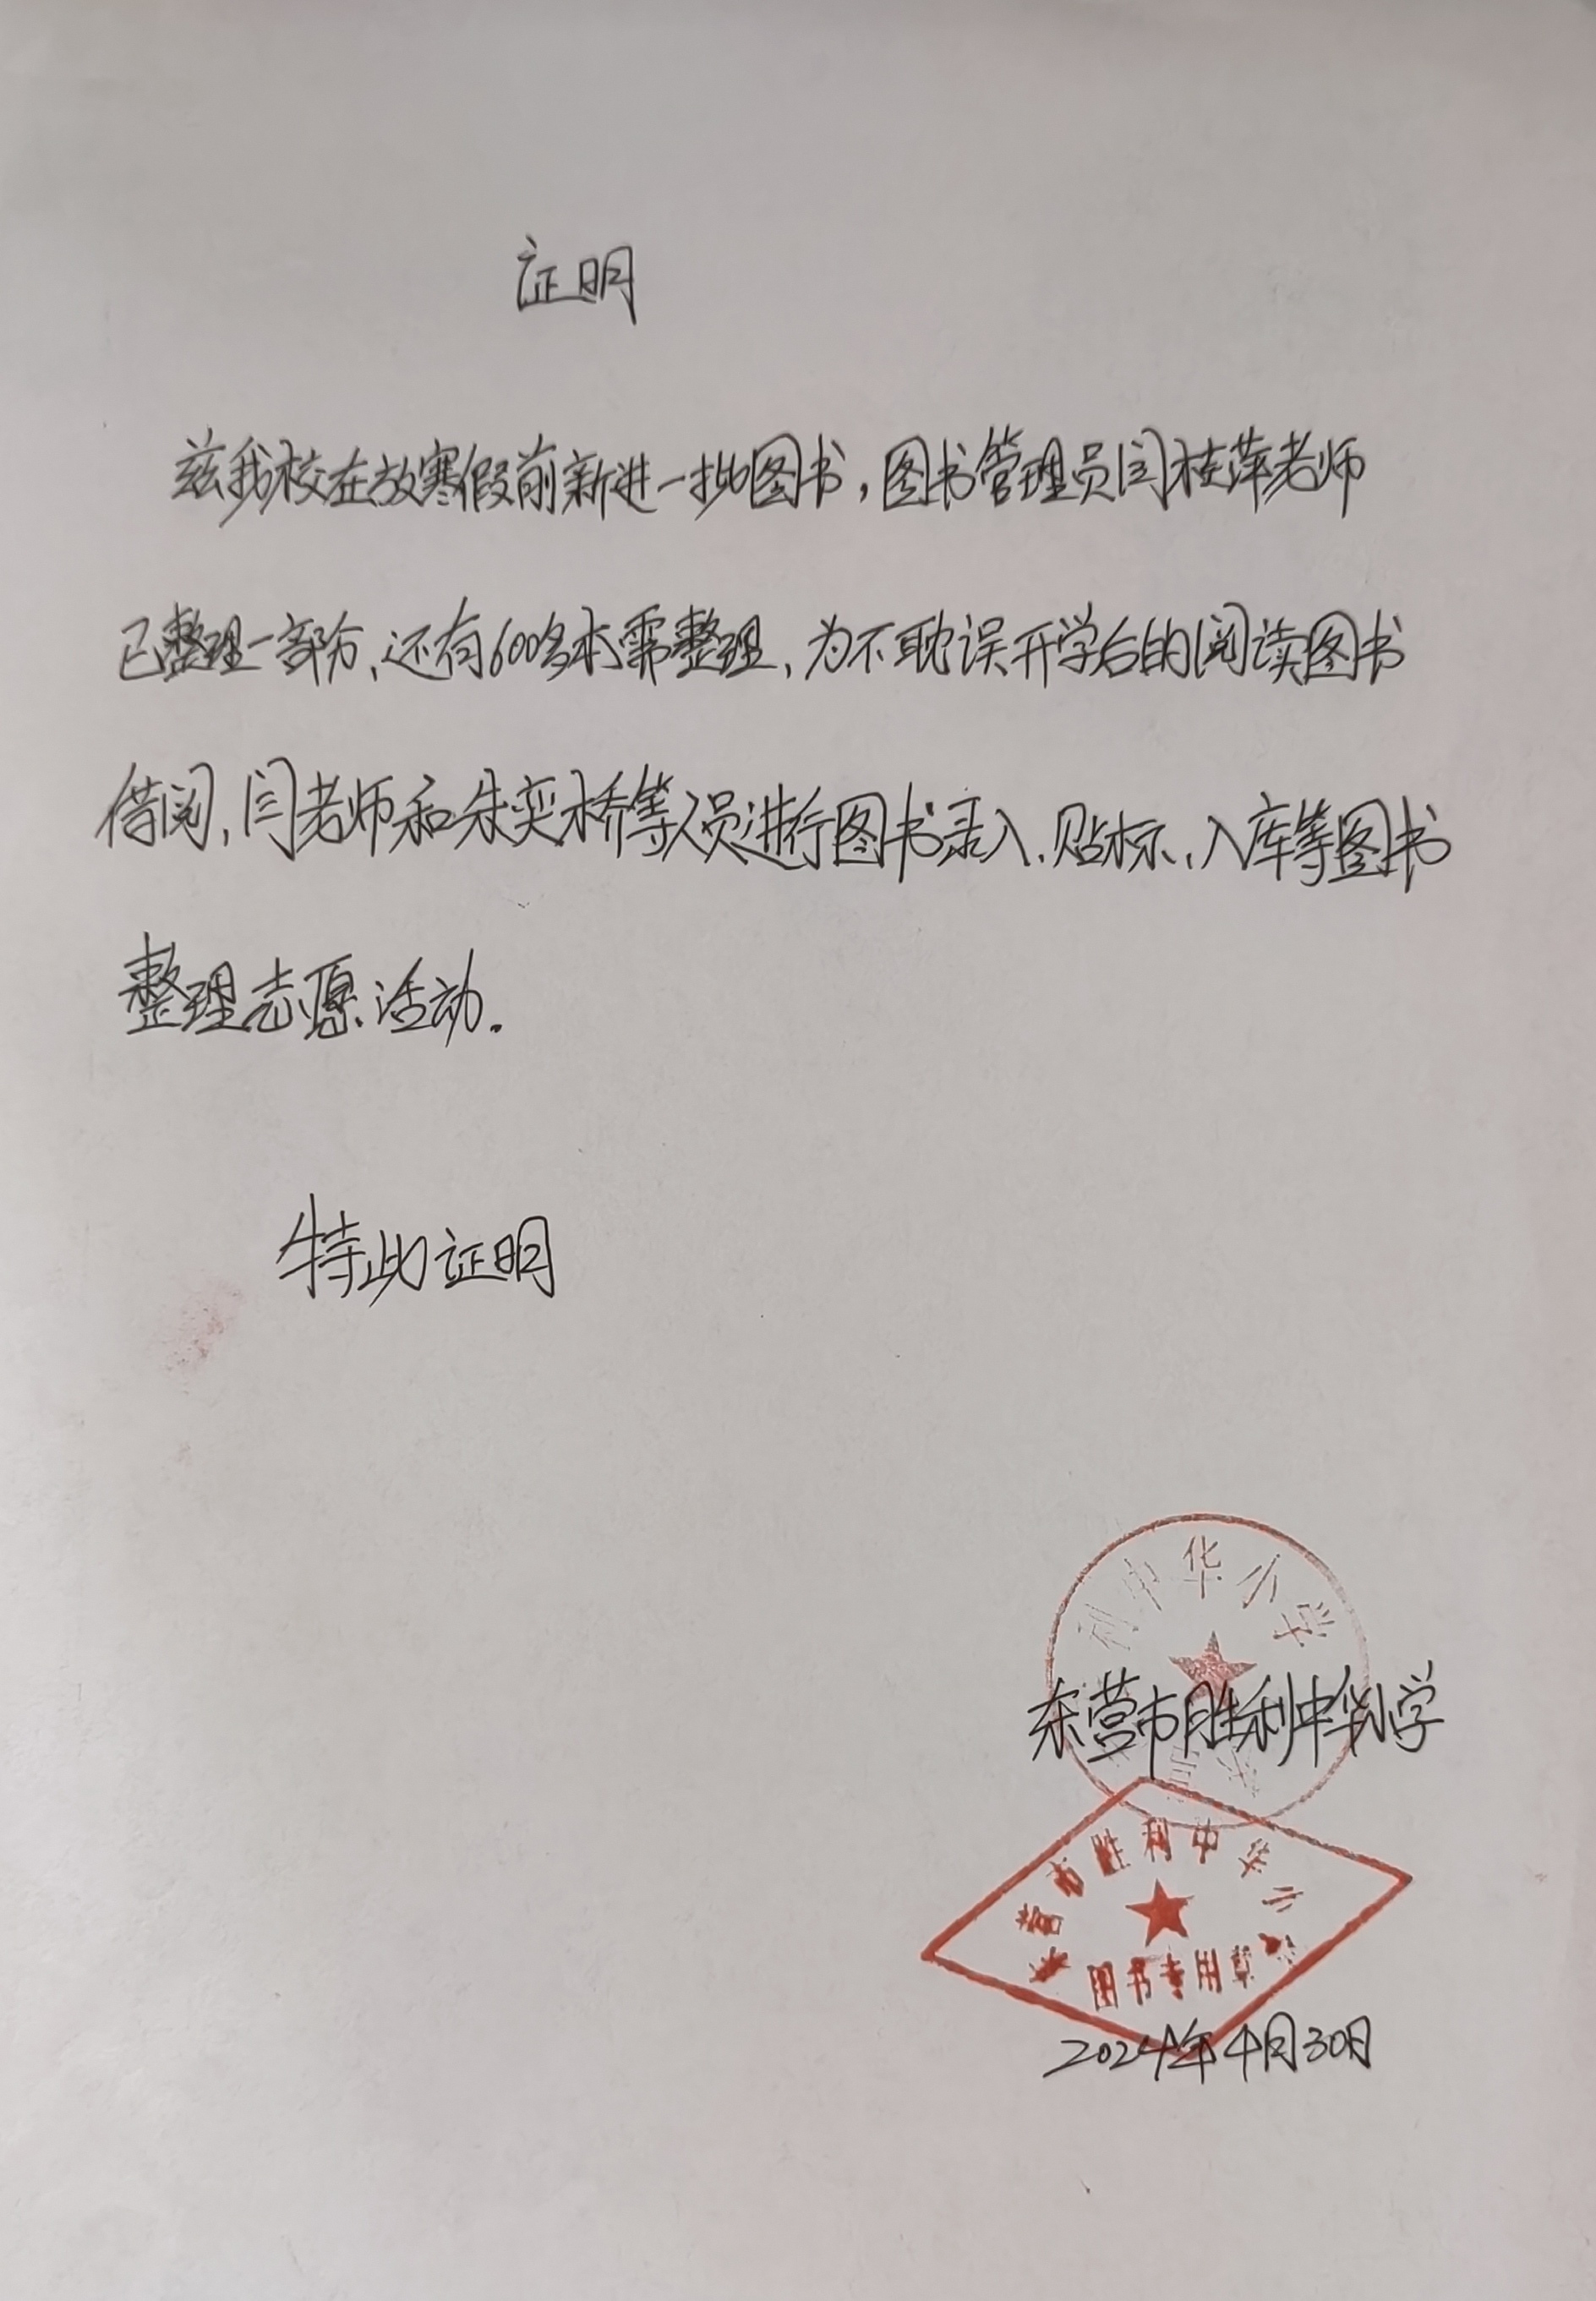 证明
兹我校在放寒假前新进一批图书，图书管理员闫桂萍老师
已整理一部分，还有600多本需整理，为不耽误开学后的阅读图书
借阅，闫老师和朱奕桥等人员进行图书录入、贴标、入库等图书
整理志愿活动。
特此证明
利中华小学
东营市胜利中华小学
东营市胜利中华小学
图书专用章
2024年4月30日